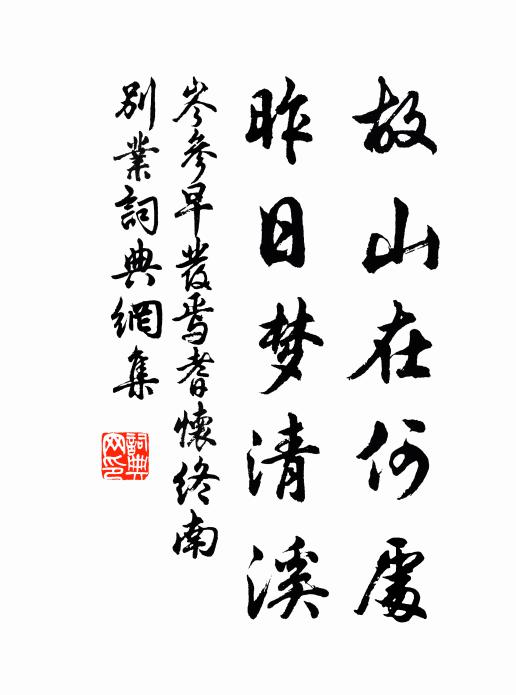 故山在何處
昨日梦清溪
岑參早發焉耆懷終南
別業詞典網集
詞典网印